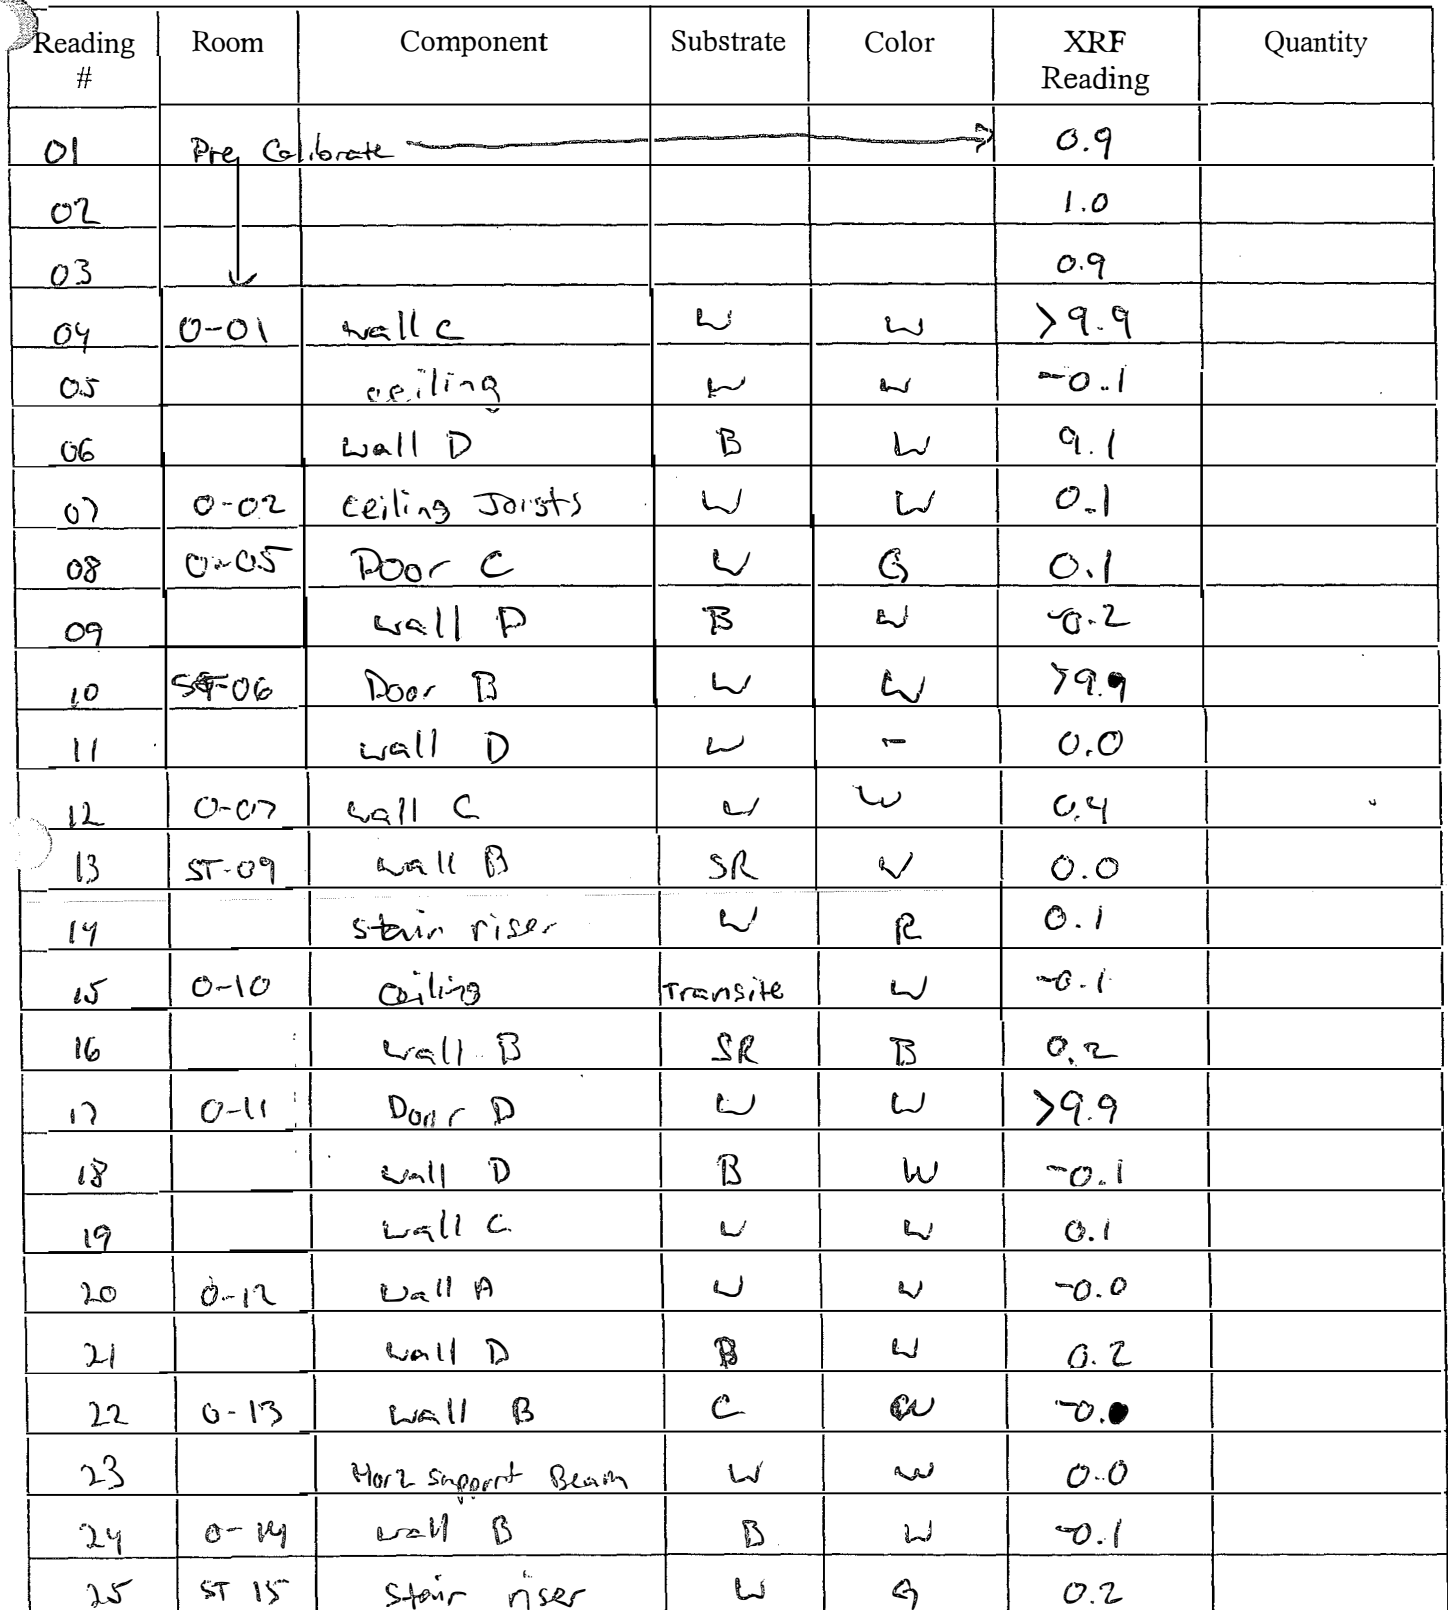 Reading # Room Component Substrate Color XRF Reading Quantity
01 Pre Calibrate 0.9
02 1.0
03 0.9
04 0-01 wall C W W >9.9
05 ceiling W W -0.1
06 wall D B W 9.1
07 0-02 ceiling Joists W W 0.1
08 0-05 Door C W G 0.1
09 wall D B W -0.2
10 ST-06 Door B W W >9.9
11 wall D W - 0.0
12 0-07 wall C W W 0.4
13 ST-09 wall B SR W 0.0
14 stair riser W R 0.1
15 0-10 ceiling Transite W -0.1
16 wall B SR B 0.2
17 0-11 Door D W W >9.9
18 wall D B W -0.1
19 wall C W W 0.1
20 0-12 wall A W W -0.0
21 wall D B W 0.2
22 0-13 wall B C W
23 Horz support Beam W W 0.0
24 0-14 wall B B W -0.1
25 ST 15 stair riser W G 0.2